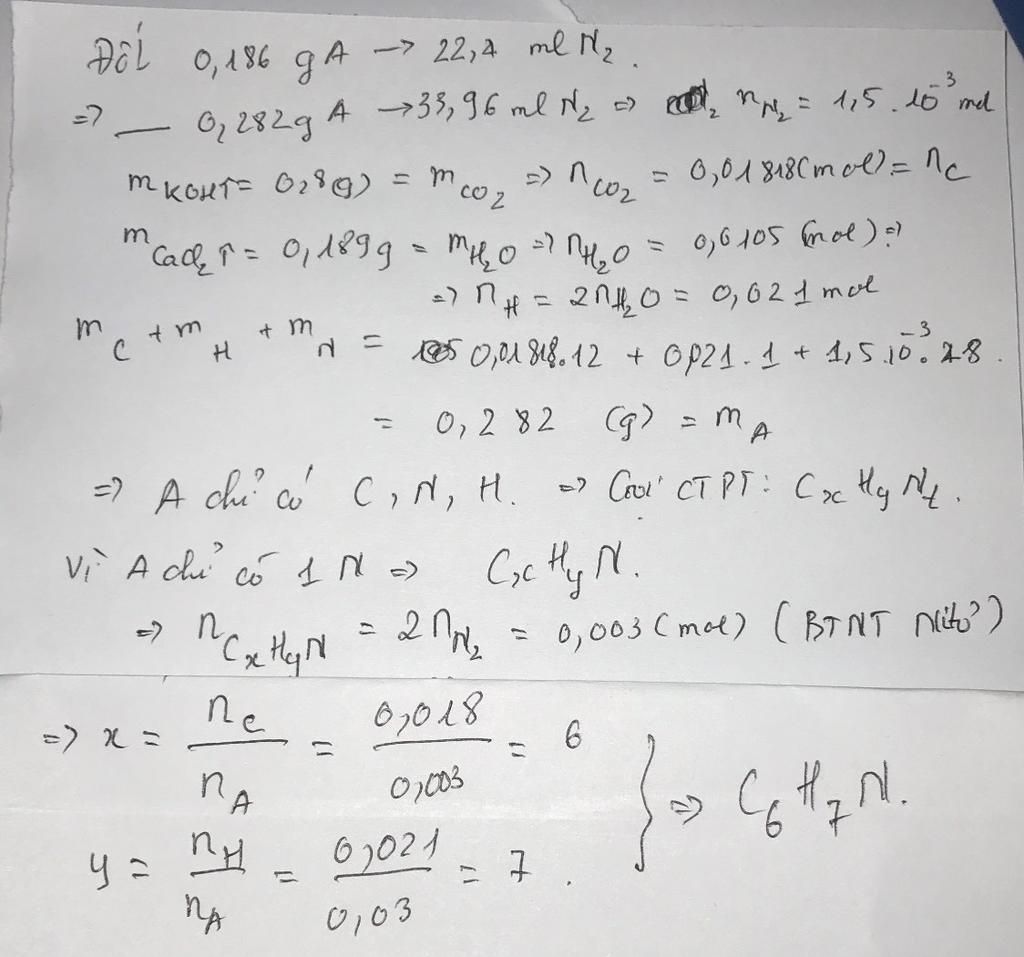 Đốt 0,186 g A → 22,4 ml N₂.
=> — 0,282g A → 33,96 ml N₂ => n_N₂ = 1,5 . 10⁻³ mol
m KOH↑ = 0,8(g) = m CO₂ => n CO₂ = 0,01818(mol) = n C
m CaCl₂ ↑ = 0,189g = m H₂O => n H₂O = 0,0105 (mol) =>
=> n H = 2n H₂O = 0,021 mol
m C + m H + m N = 0,01818.12 + 0,021.1 + 1,5.10⁻³.28.
= 0,282 (g) = m A
=> A chỉ có C, N, H. => Gọi CTPT: CxHyNt.
Vì A chỉ có 1 N => CxHyN.
=> n CxHyN = 2n N₂ = 0,003 (mol) (BTNT Nitơ)
=> x = n C / n A = 0,018 / 0,003 = 6
y = n H / n A = 0,021 / 0,03 = 7 . } => C₆H₇N.